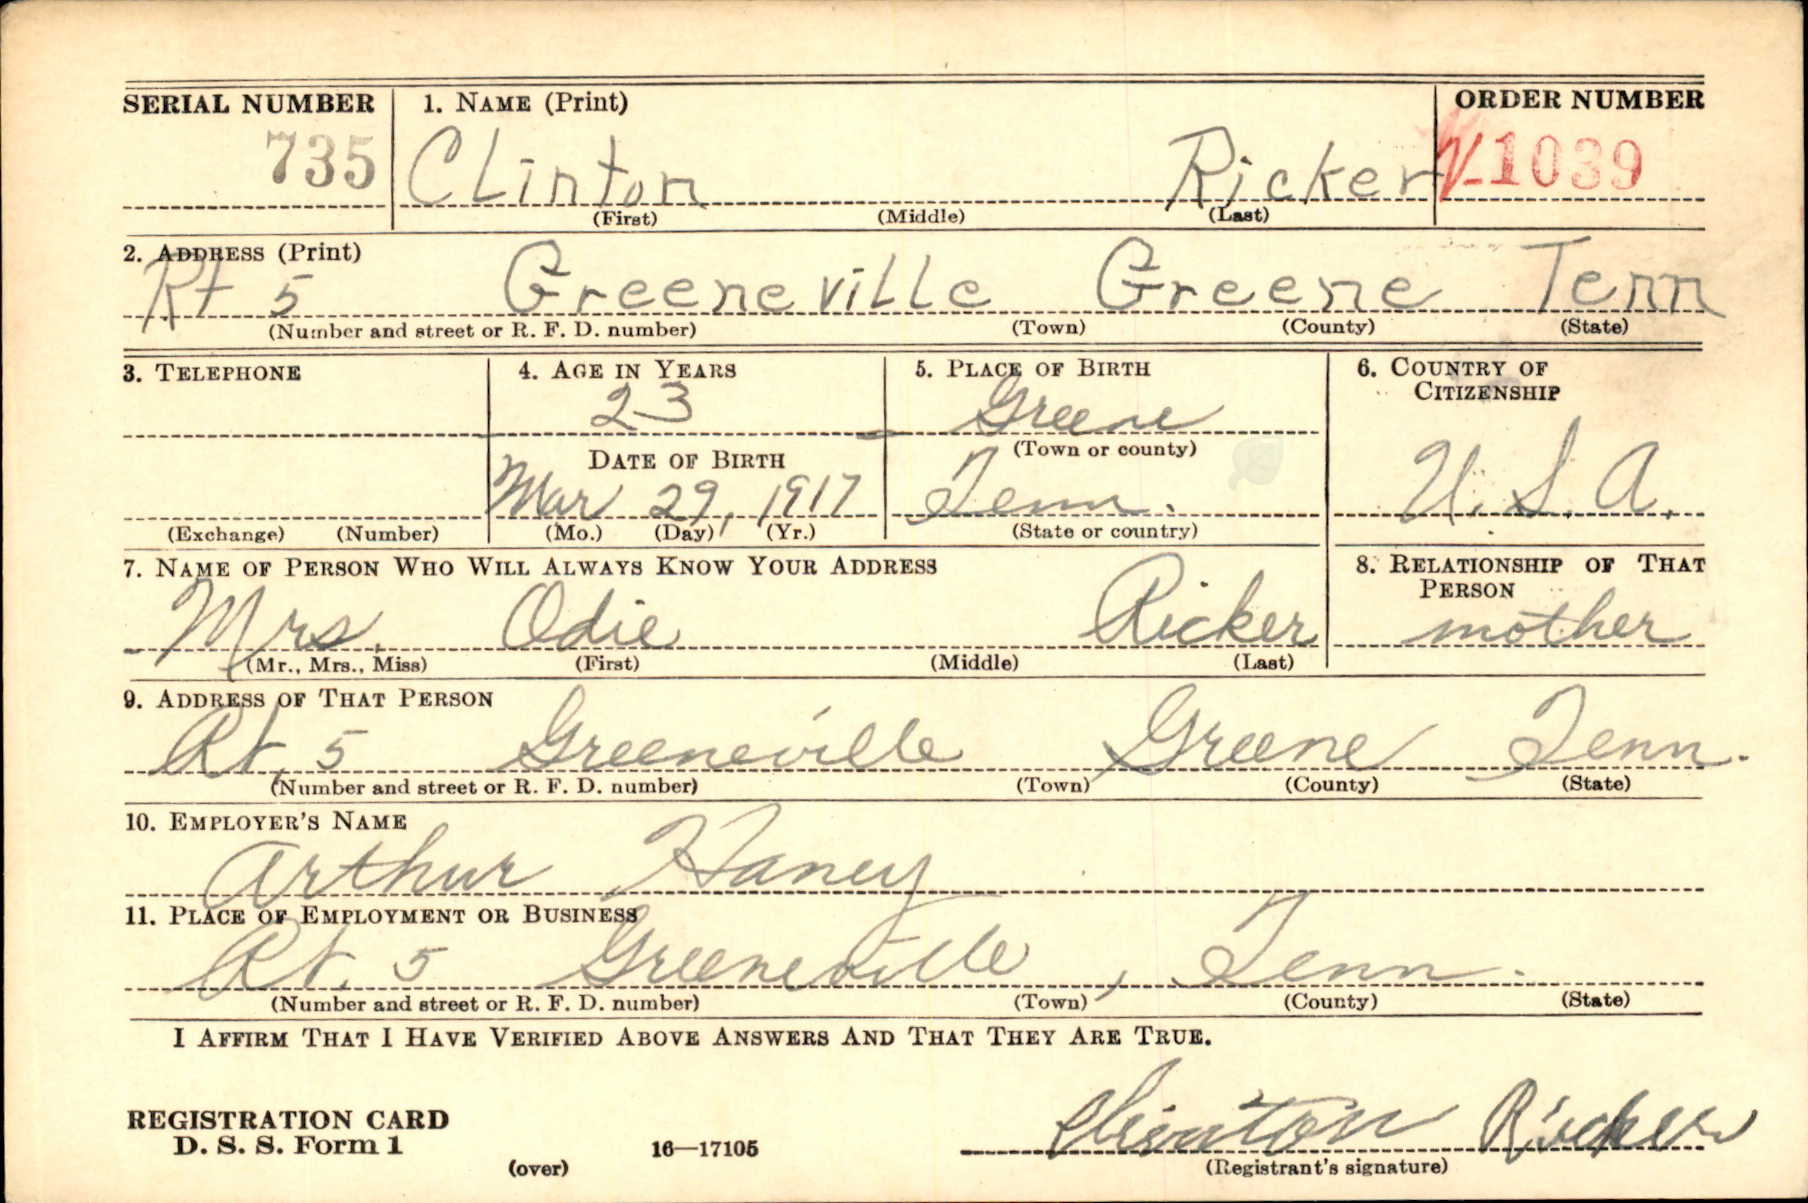 SERIAL NUMBER 1. NAME (Print) ORDER NUMBER
735 Clinton Ricker V-1039
(First) (Middle) (Last)
2. ADDRESS (Print)
Rt 5 Greeneville Greene Tenn
(Number and street or R. F. D. number) (Town) (County) (State)
3. TELEPHONE 4. AGE IN YEARS 5. PLACE OF BIRTH 6. COUNTRY OF CITIZENSHIP
23 Greene
(Town or county)
DATE OF BIRTH
Mar 29, 1917 Tenn. U. S. A.
(Exchange) (Number) (Mo.) (Day) (Yr.) (State or country)
7. NAME OF PERSON WHO WILL ALWAYS KNOW YOUR ADDRESS 8. RELATIONSHIP OF THAT PERSON
Mrs. Odie Ricker mother
(Mr., Mrs., Miss) (First) (Middle) (Last)
9. ADDRESS OF THAT PERSON
Rt. 5 Greeneville Greene Tenn.
(Number and street or R. F. D. number) (Town) (County) (State)
10. EMPLOYER'S NAME
Arthur Haney
11. PLACE OF EMPLOYMENT OR BUSINESS
Rt. 5 Greeneville, Tenn.
(Number and street or R. F. D. number) (Town) (County) (State)
I AFFIRM THAT I HAVE VERIFIED ABOVE ANSWERS AND THAT THEY ARE TRUE.
Clinton Ricker
REGISTRATION CARD
D. S. S. Form 1
(over) 16—17105 (Registrant's signature)